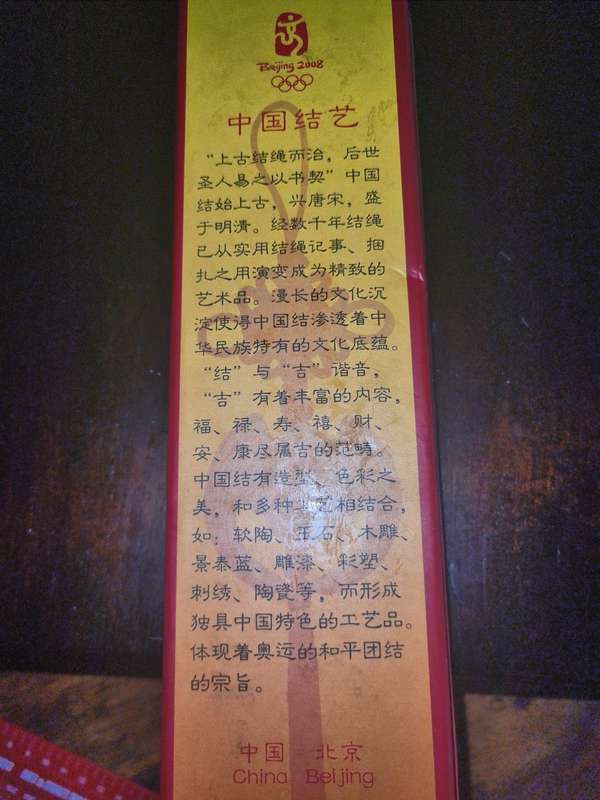 Beijing 2008
中国结艺
“上古结绳而治，后世
圣人易之以书契”中国
结始上古，兴唐宋，盛
于明清。经数千年结绳
已从实用结绳记事、捆
扎之用演变成为精致的
艺术品。漫长的文化沉
淀使得中国结渗透着中
华民族特有的文化底蕴。
“结”与“吉”谐音，
“吉”有着丰富的内容，
福、禄、寿、禧、财、
安、康尽属吉的范畴。
中国结有造型、色彩之
美，和多种工艺相结合，
如：软陶、玉石、木雕、
景泰蓝、雕漆、彩塑、
刺绣、陶瓷等，而形成
独具中国特色的工艺品。
体现着奥运的和平团结
的宗旨。
中国 北京
China Beijing